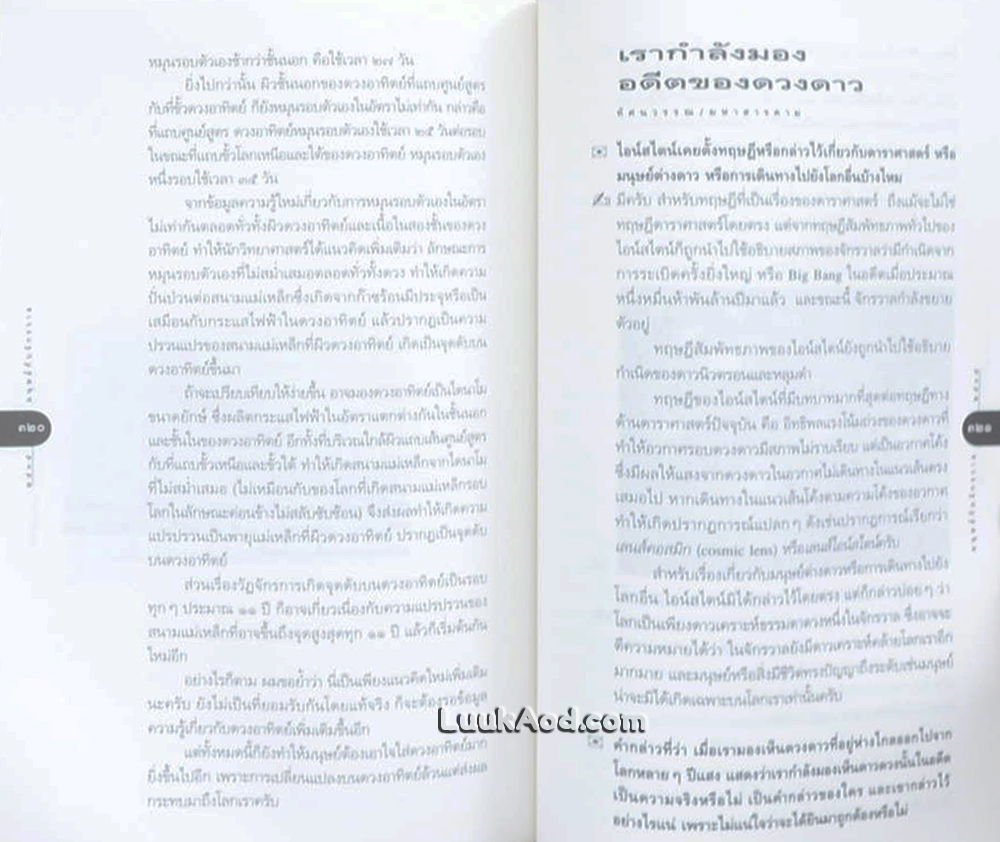 หมุนรอบตัวเองช้ากว่าชั้นนอก คือใช้เวลา ๒๗ วัน
ยิ่งไปกว่านั้น ผิวชั้นนอกของดวงอาทิตย์ที่แถบศูนย์สูตร
กับที่ขั้วดวงอาทิตย์ ก็ยังหมุนรอบตัวเองในอัตราไม่เท่ากัน กล่าวคือ
ที่แถบศูนย์สูตร ดวงอาทิตย์หมุนรอบตัวเองใช้เวลา ๒๕ วันต่อรอบ
ในขณะที่แถบขั้วโลกเหนือและใต้ของดวงอาทิตย์ หมุนรอบตัวเอง
หนึ่งรอบใช้เวลา ๓๕ วัน
จากข้อมูลความรู้ใหม่เกี่ยวกับการหมุนรอบตัวเองในอัตรา
ไม่เท่ากันตลอดทั่วทั้งผิวดวงอาทิตย์และเนื้อในสองชั้นของดวง
อาทิตย์ ทำให้นักวิทยาศาสตร์ได้แนวคิดเพิ่มเติมว่า ลักษณะการ
หมุนรอบตัวเองที่ไม่สม่ำเสมอตลอดทั่วทั้งดวง ทำให้เกิดความ
ปั่นป่วนต่อสนามแม่เหล็กซึ่งเกิดจากก๊าซร้อนมีประจุหรือเป็น
เสมือนกับกระแสไฟฟ้าในดวงอาทิตย์ แล้วปรากฏเป็นความ
ปรวนแปรของสนามแม่เหล็กที่ผิวดวงอาทิตย์ เกิดเป็นจุดดับบน
ดวงอาทิตย์ขึ้นมา
ถ้าจะเปรียบเทียบให้ง่ายขึ้น อาจมองดวงอาทิตย์เป็นไดนาโม
ขนาดยักษ์ ซึ่งผลิตกระแสไฟฟ้าในอัตราแตกต่างกันในชั้นนอก
และชั้นในของดวงอาทิตย์ อีกทั้งที่บริเวณใกล้ผิวแถบเส้นศูนย์สูตร
กับที่แถบขั้วเหนือและขั้วใต้ ทำให้เกิดสนามแม่เหล็กจากไดนาโม
ที่ไม่สม่ำเสมอ (ไม่เหมือนกับของโลกที่เกิดสนามแม่เหล็กรอบ
โลกในลักษณะค่อนข้างไม่สลับซับซ้อน) จึงส่งผลทำให้เกิดความ
แปรปรวนเป็นพายุแม่เหล็กที่ผิวดวงอาทิตย์ ปรากฏเป็นจุดดับ
บนดวงอาทิตย์
ส่วนเรื่องวัฏจักรการเกิดจุดดับบนดวงอาทิตย์เป็นรอบ
ทุกๆ ประมาณ ๑๑ ปี ก็อาจเกี่ยวเนื่องกับความแปรปรวนของ
สนามแม่เหล็กที่อาจขึ้นถึงจุดสูงสุดทุก ๑๑ ปี แล้วก็เริ่มต้นกัน
ใหม่อีก
อย่างไรก็ตาม ผมขอย้ำว่า นี่เป็นเพียงแนวคิดใหม่เพิ่มเติม
นะครับ ยังไม่เป็นที่ยอมรับกันโดยแท้จริง ก็จะต้องรอข้อมูล
ความรู้เกี่ยวกับดวงอาทิตย์เพิ่มเติมขึ้นอีก
แต่ทั้งหมดนี้ก็ยังทำให้มนุษย์ต้องเอาใจใส่ดวงอาทิตย์มาก
ยิ่งขึ้นไปอีก เพราะการเปลี่ยนแปลงบนดวงอาทิตย์ล้วนแต่ส่งผล
กระทบมาถึงโลกเราครับ
๓๒๐
เรากำลังมอง
อดีตของดวงดาว
ทัศนวรรณ/มหาสารคาม
ไอน์สไตน์เคยตั้งทฤษฎีหรือกล่าวไว้เกี่ยวกับดาราศาสตร์ หรือ
มนุษย์ต่างดาว หรือการเดินทางไปยังโลกอื่นบ้างไหม
มีครับ สำหรับทฤษฎีที่เป็นเรื่องของดาราศาสตร์ ถึงแม้จะไม่ใช่
ทฤษฎีดาราศาสตร์โดยตรง แต่จากทฤษฎีสัมพัทธภาพทั่วไปของ
ไอน์สไตน์ก็ถูกนำไปใช้อธิบายสภาพของจักรวาลว่ามีกำเนิดจาก
การระเบิดครั้งยิ่งใหญ่ หรือ Big Bang ในอดีตเมื่อประมาณ
หนึ่งหมื่นห้าพันล้านปีมาแล้ว และขณะนี้ จักรวาลกำลังขยาย
ตัวอยู่
ทฤษฎีสัมพัทธภาพของไอน์สไตน์ยังถูกนำไปใช้อธิบาย
กำเนิดของดาวนิวตรอนและหลุมดำ
ทฤษฎีของไอน์สไตน์ที่มีบทบาทมากที่สุดต่อทฤษฎีทาง
ด้านดาราศาสตร์ปัจจุบัน คือ อิทธิพลแรงโน้มถ่วงของดวงดาวที่
ทำให้อวกาศรอบดวงดาวมีสภาพไม่ราบเรียบ แต่เป็นอวกาศโค้ง
ซึ่งมีผลให้แสงจากดวงดาวในอวกาศไม่เดินทางในแนวเส้นตรง
เสมอไป หากเดินทางในแนวเส้นโค้งตามความโค้งของอวกาศ
ทำให้เกิดปรากฏการณ์แปลกๆ ดังเช่นปรากฏการณ์เรียกว่า
เลนส์คอสมิก (cosmic lens) หรือเลนส์ไอน์สไตน์ครับ
สำหรับเรื่องเกี่ยวกับมนุษย์ต่างดาวหรือการเดินทางไปยัง
โลกอื่น ไอน์สไตน์มิได้กล่าวไว้โดยตรง แต่ก็กล่าวบ่อยๆ ว่า
โลกเป็นเพียงดาวเคราะห์ธรรมดาดวงหนึ่งในจักรวาล ซึ่งอาจจะ
ตีความหมายได้ว่า ในจักรวาลยังมีดาวเคราะห์คล้ายโลกเราอีก
มากมาย และมนุษย์หรือสิ่งมีชีวิตทรงปัญญาถึงระดับเช่นมนุษย์
น่าจะมิได้เกิดเฉพาะบนโลกเราเท่านั้นครับ
LuukAod.com
คำกล่าวที่ว่า เมื่อเรามองเห็นดวงดาวที่อยู่ห่างไกลออกไปจาก
โลกหลายๆ ปีแสง แสดงว่าเรากำลังมองเห็นดาวดวงนั้นในอดีต
เป็นความจริงหรือไม่ เป็นคำกล่าวของใคร และเขากล่าวไว้
อย่างไรแน่ เพราะไม่แน่ใจว่าจะได้ยินมาถูกต้องหรือไม่
๓๒๑